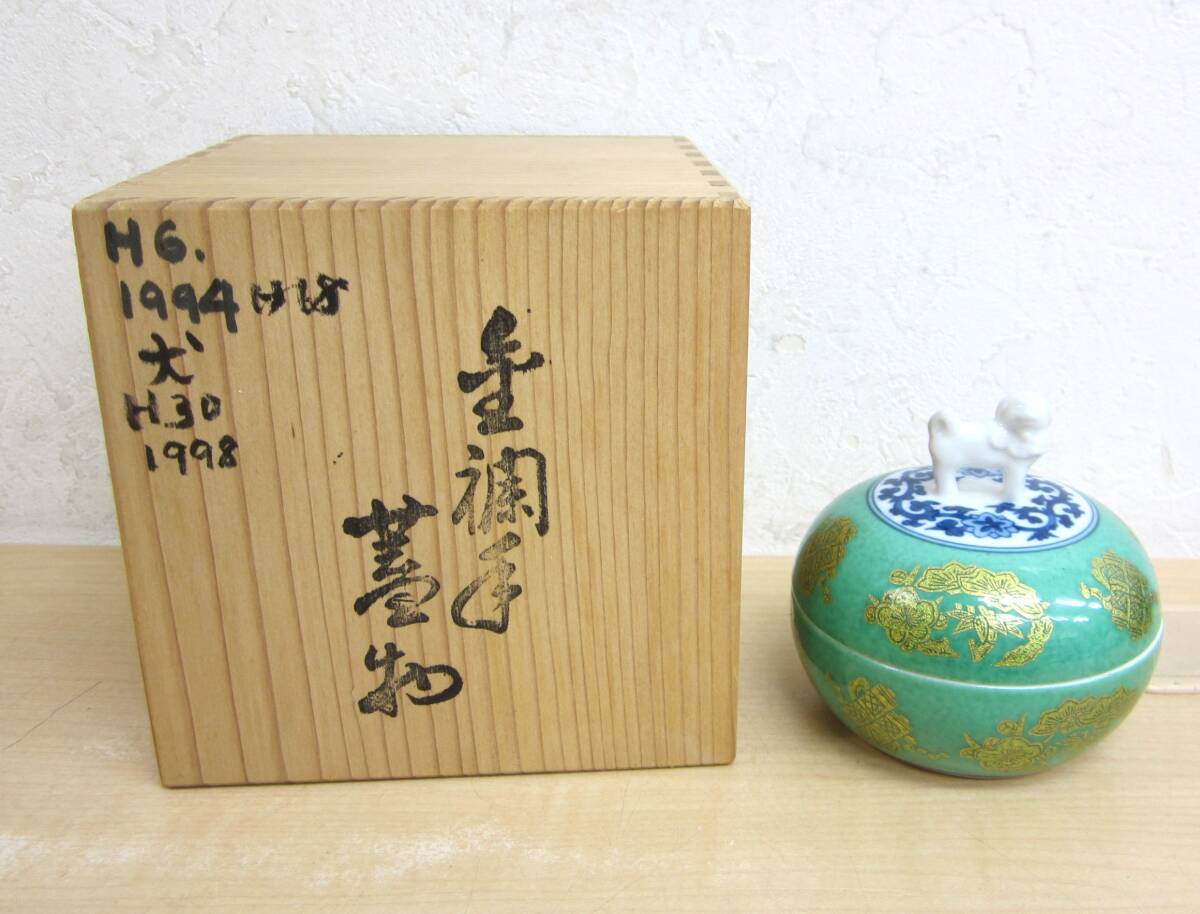 H6.
1994 H18
犬
H30
1998
金襴手
蓋物